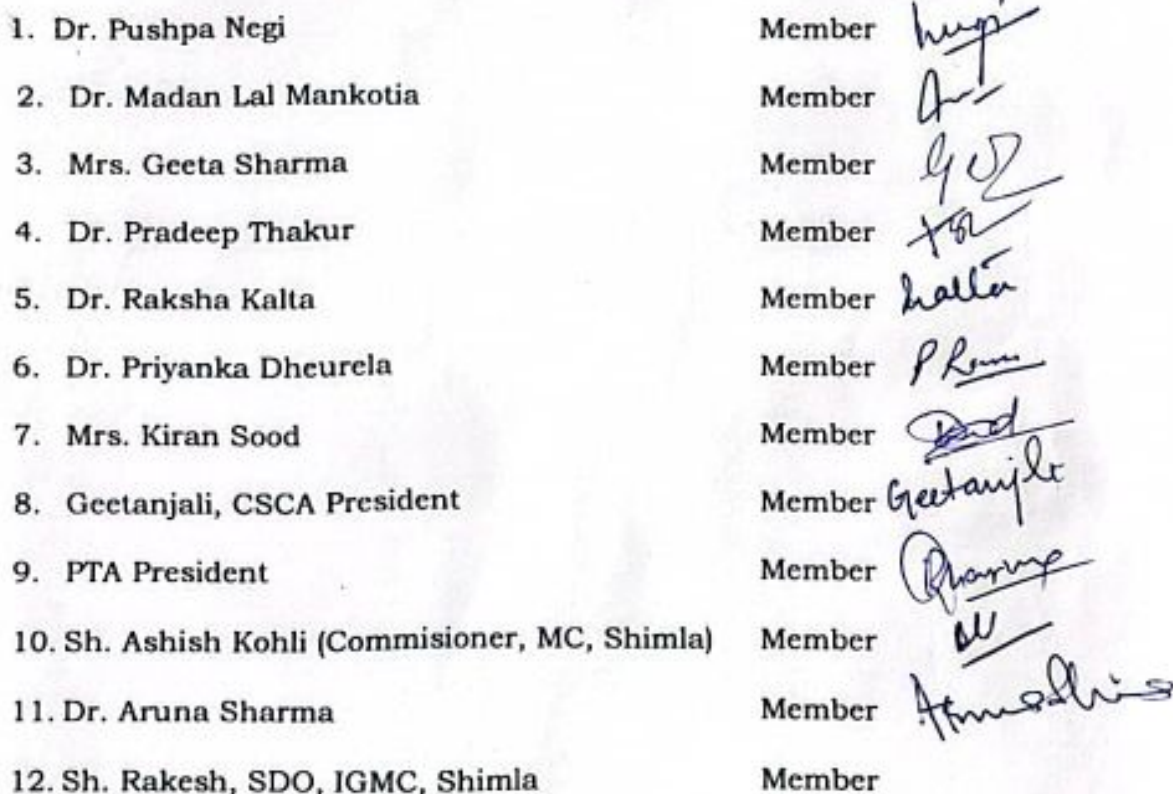 1. Dr. Pushpa Negi Member Negi
2. Dr. Madan Lal Mankotia Member
3. Mrs. Geeta Sharma Member
4. Dr. Pradeep Thakur Member
5. Dr. Raksha Kalta Member Kalta
6. Dr. Priyanka Dheurela Member
7. Mrs. Kiran Sood Member
8. Geetanjali, CSCA President Member Geetanjli
9. PTA President Member
10. Sh. Ashish Kohli (Commisioner, MC, Shimla) Member
11. Dr. Aruna Sharma Member
12. Sh. Rakesh, SDO, IGMC, Shimla Member